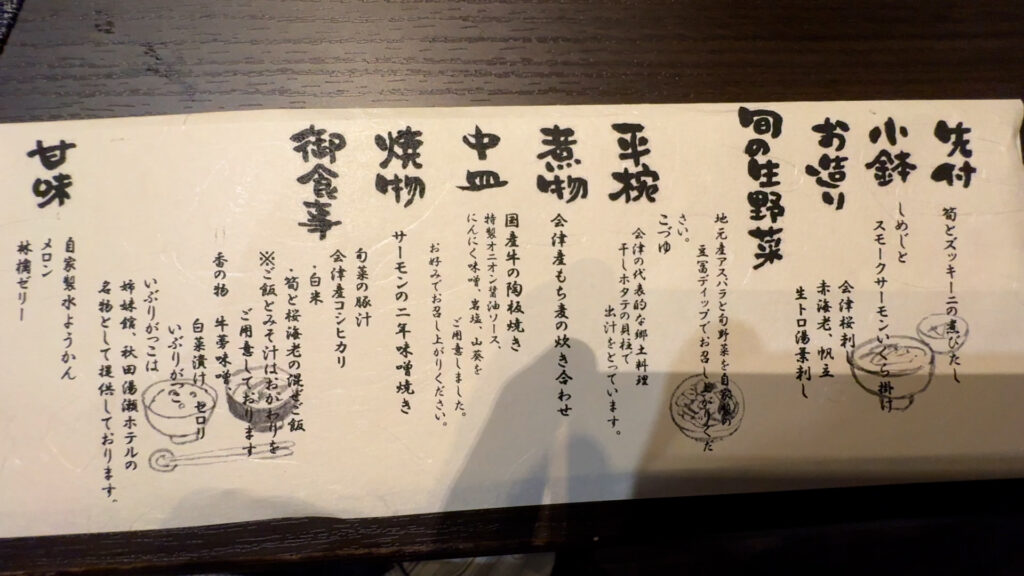 先付
筍とズッキーニの煮びたし
小鉢
しめじと
スモークサーモンいくら掛け
お造り
会津桜刺し
赤海老、帆立
生トロ湯葉刺し
旬の生野菜
地元産アスパラと旬野菜を自家製の
豆富ディップでお召し上がりくだ
さい。
平椀
こづゆ
会津の代表的な郷土料理
干しホタテの貝柱で
出汁をとっています。
煮物
会津産もち麦の炊き合わせ
中皿
国産牛の陶板焼き
特製オニオン醤油ソース、
にんにく味噌、岩塩、山葵を
ご用意しました。
お好みでお召し上がりください。
焼物
サーモンの二年味噌焼き
御食事
旬菜の豚汁
会津産コシヒカリ
・白米
・筍と桜海老の混ぜご飯
※ご飯とみそ汁はおかわりを
ご用意しております
香の物 牛蒡味噌
白菜漬け セロリ
いぶりがっこ
いぶりがっこは
姉妹館、秋田湯瀬ホテルの
名物として提供しております。
甘味
自家製水ようかん
メロン
林檎ゼリー